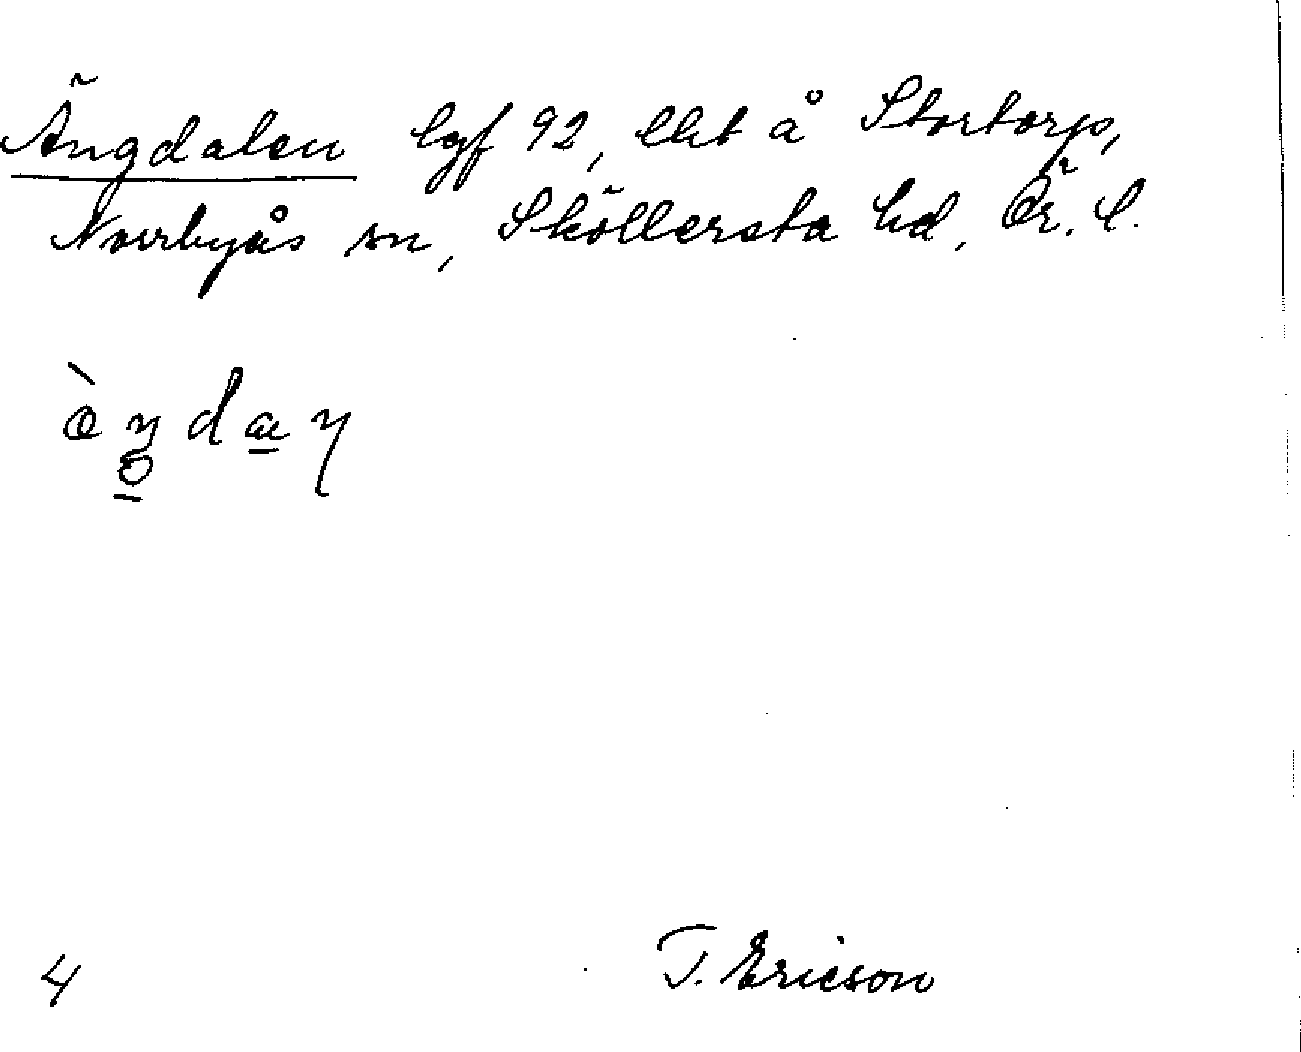 Ängdalen lgf 92, lht å Stortorp,
Norrbyås sn, Sköllersta hd, Ör. l.
4
T. Ericson